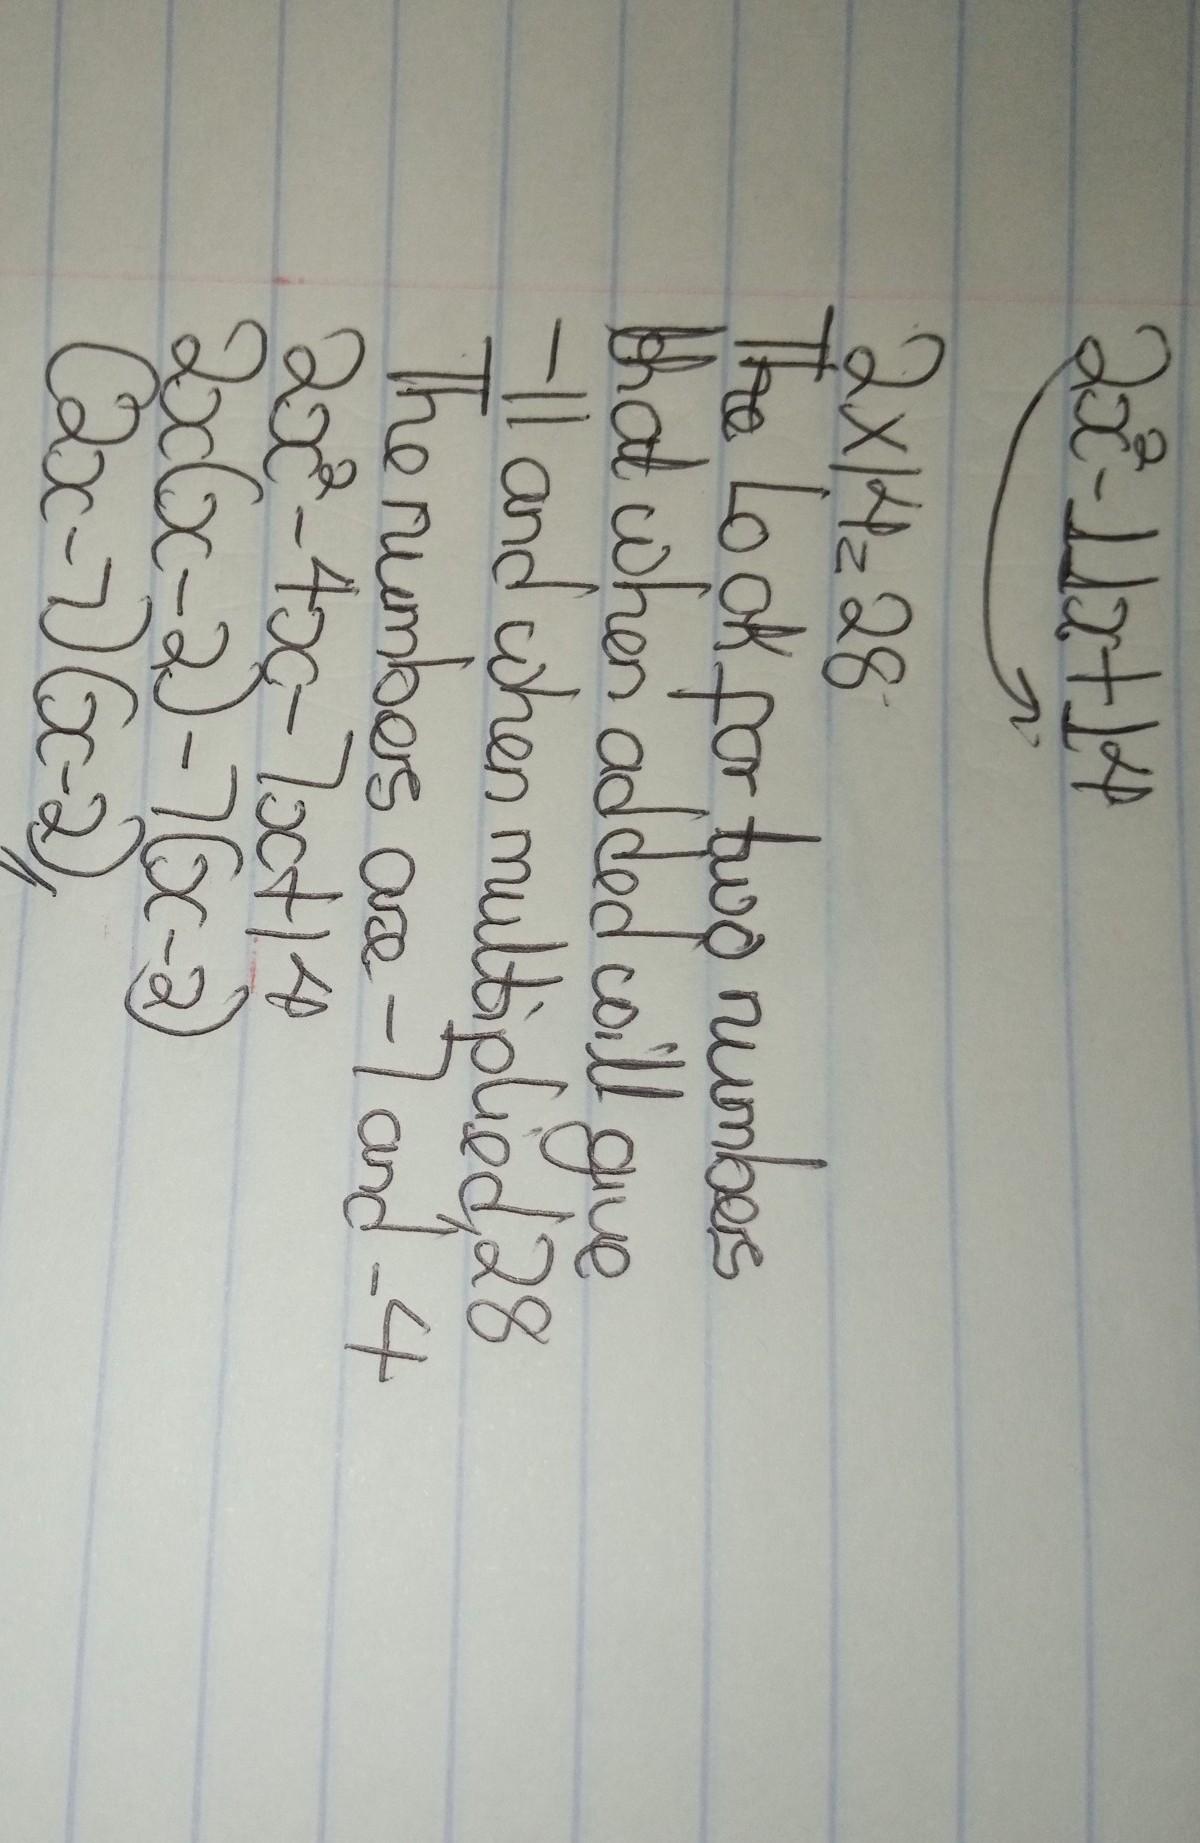 2x² - 11x + 14
2 x 14 = 28
The Look for two numbers
that when added will give
-11 and when multiplied, 28
The numbers are -7 and -4
2x² - 4x - 7x + 14
2x(x - 2) - 7(x - 2)
(2x - 7)(x - 2)